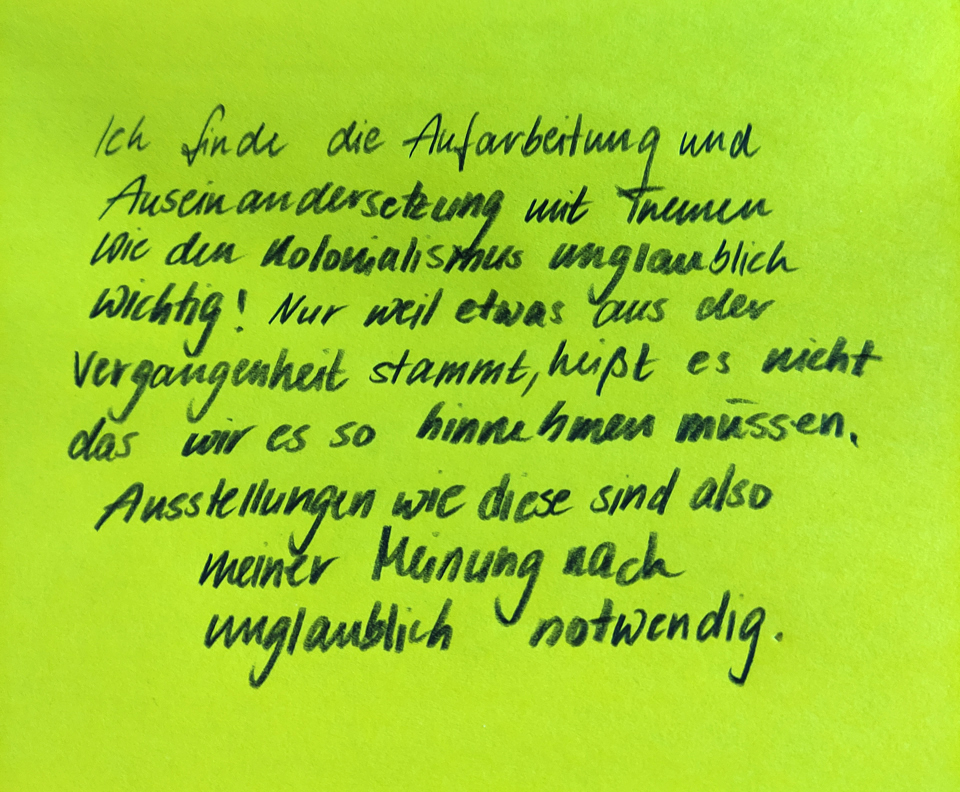 Ich finde die Aufarbeitung und
Auseinandersetzung mit Themen
wie den Kolonialismus unglaublich
wichtig! Nur weil etwas aus der
Vergangenheit stammt, heißt es nicht
das wir es so hinnehmen müssen.
Ausstellungen wie diese sind also
meiner Meinung nach
unglaublich notwendig.